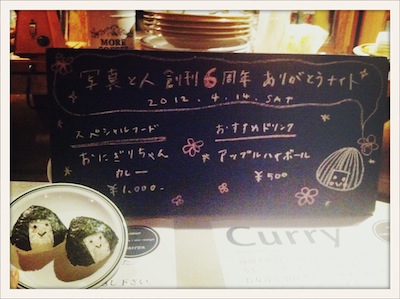 MORE
写真と人 創刊6周年 ありがとうナイト
2012.4.14.SAT
スペシャルフード
おにぎりちゃん
カレー
¥1,000-
おすすめドリンク
アップルハイボール
¥500
Curry
下さい